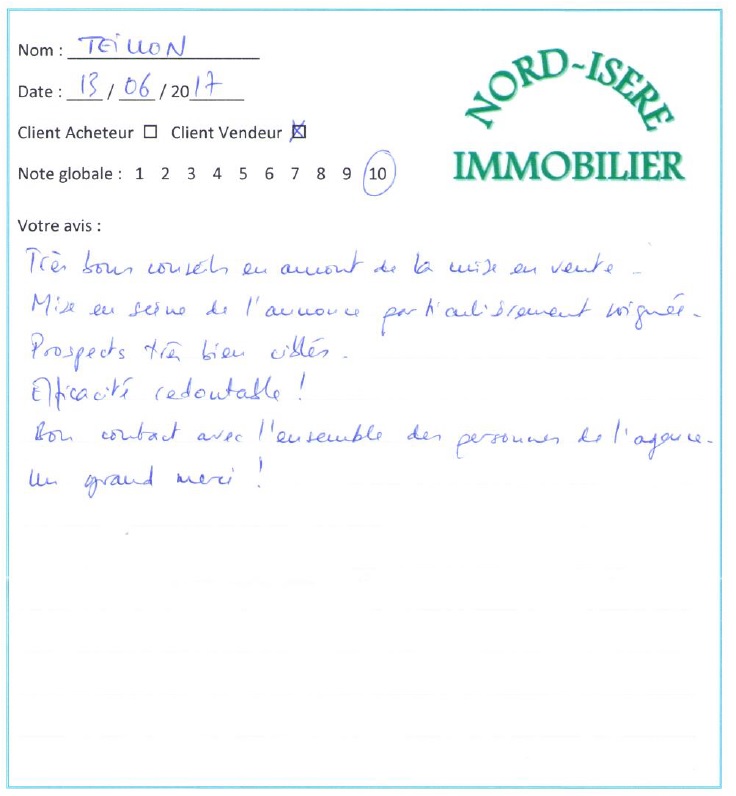 Nom : TEILLON
Date : 13 / 06 / 2017
NORD-ISERE
IMMOBILIER
Client Acheteur ☐ Client Vendeur ☒
Note globale : 1 2 3 4 5 6 7 8 9 10
Votre avis :
Très bons conseils en amont de la mise en vente.
Mise en scène de l'annonce particulièrement soignée.
Prospects très bien ciblés.
Efficacité redoutable !
Bon contact avec l'ensemble des personnes de l'agence.
Un grand merci !